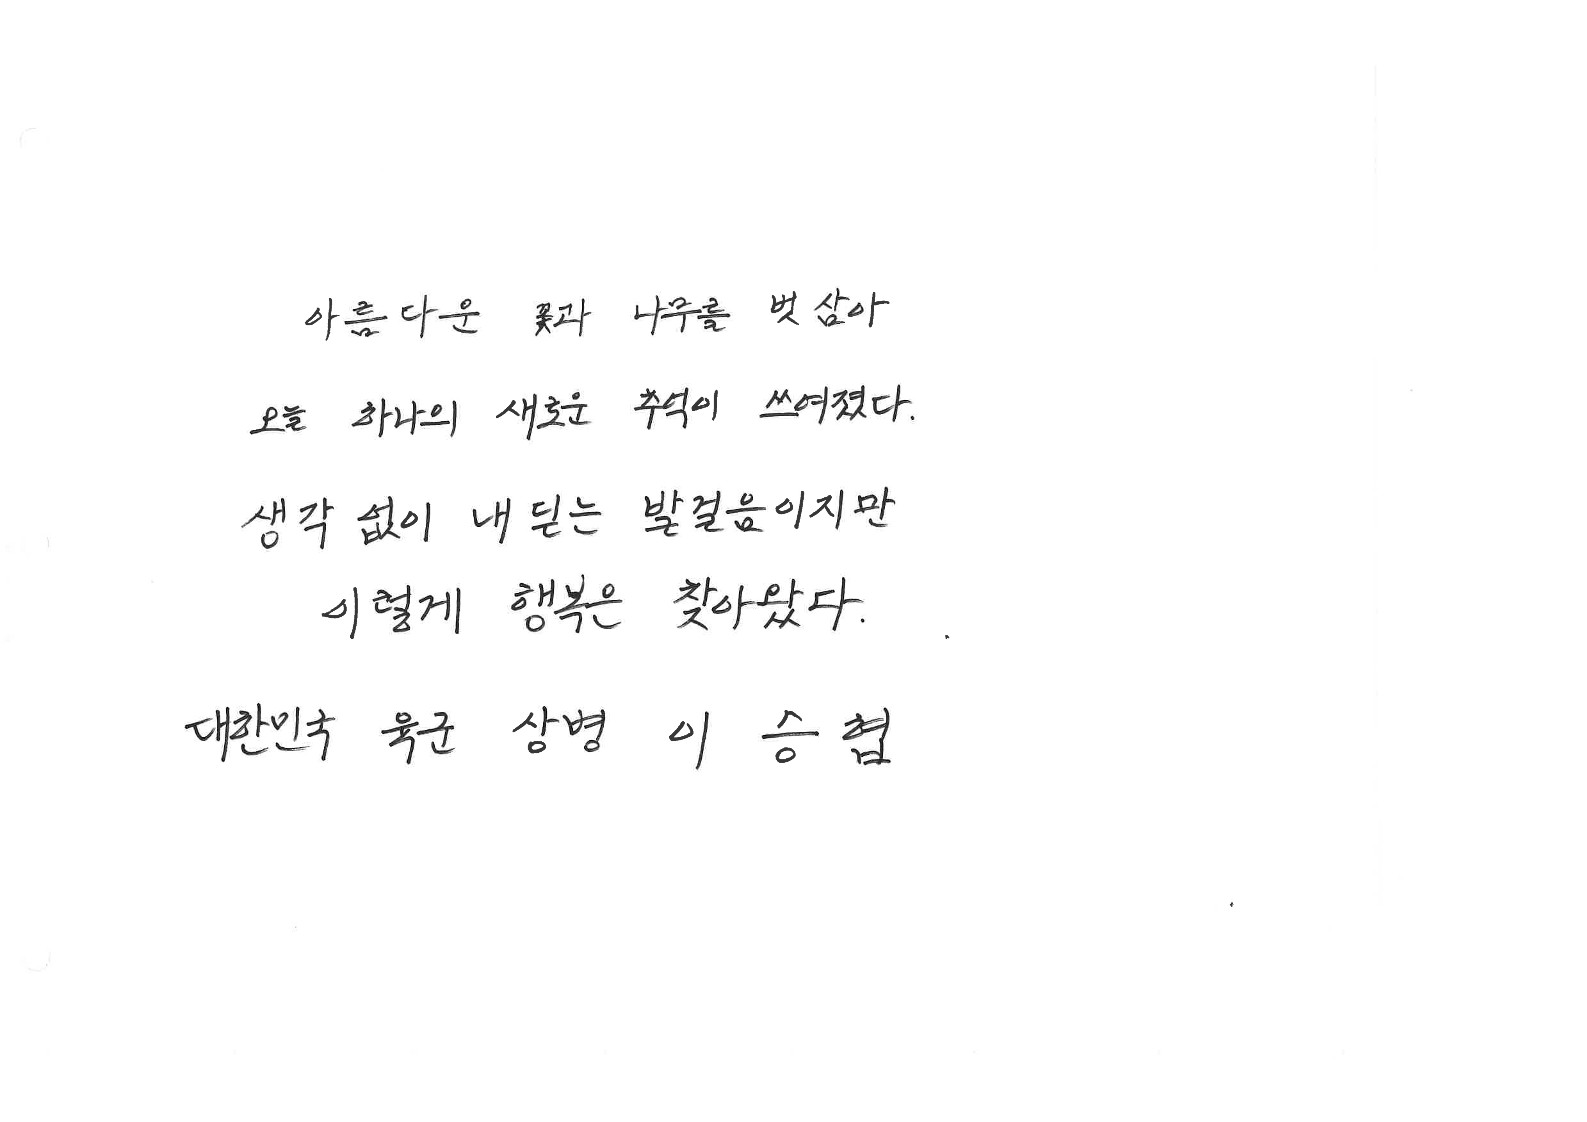 아름다운 꽃과 나무를 벗 삼아
오늘 하나의 새로운 추억이 쓰여졌다.
생각 없이 내 딛는 발걸음이지만
이렇게 행복은 찾아왔다.
대한민국 육군 상병 이 승 협